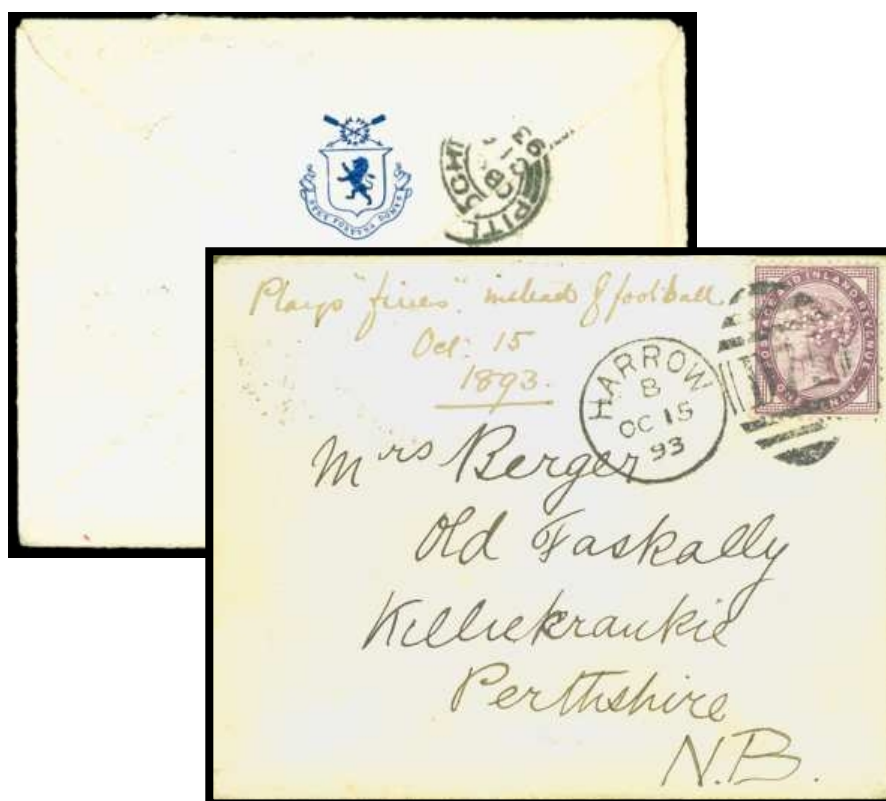 PITL OCHR
93
Plays "fives" instead of football
Oct: 15
1893.
HARROW
B
OC 15
93
POSTAGE AND INLAND REVENUE
Mrs Berger
Old Faskally
Killiekrankie
Perthshire
N.B.